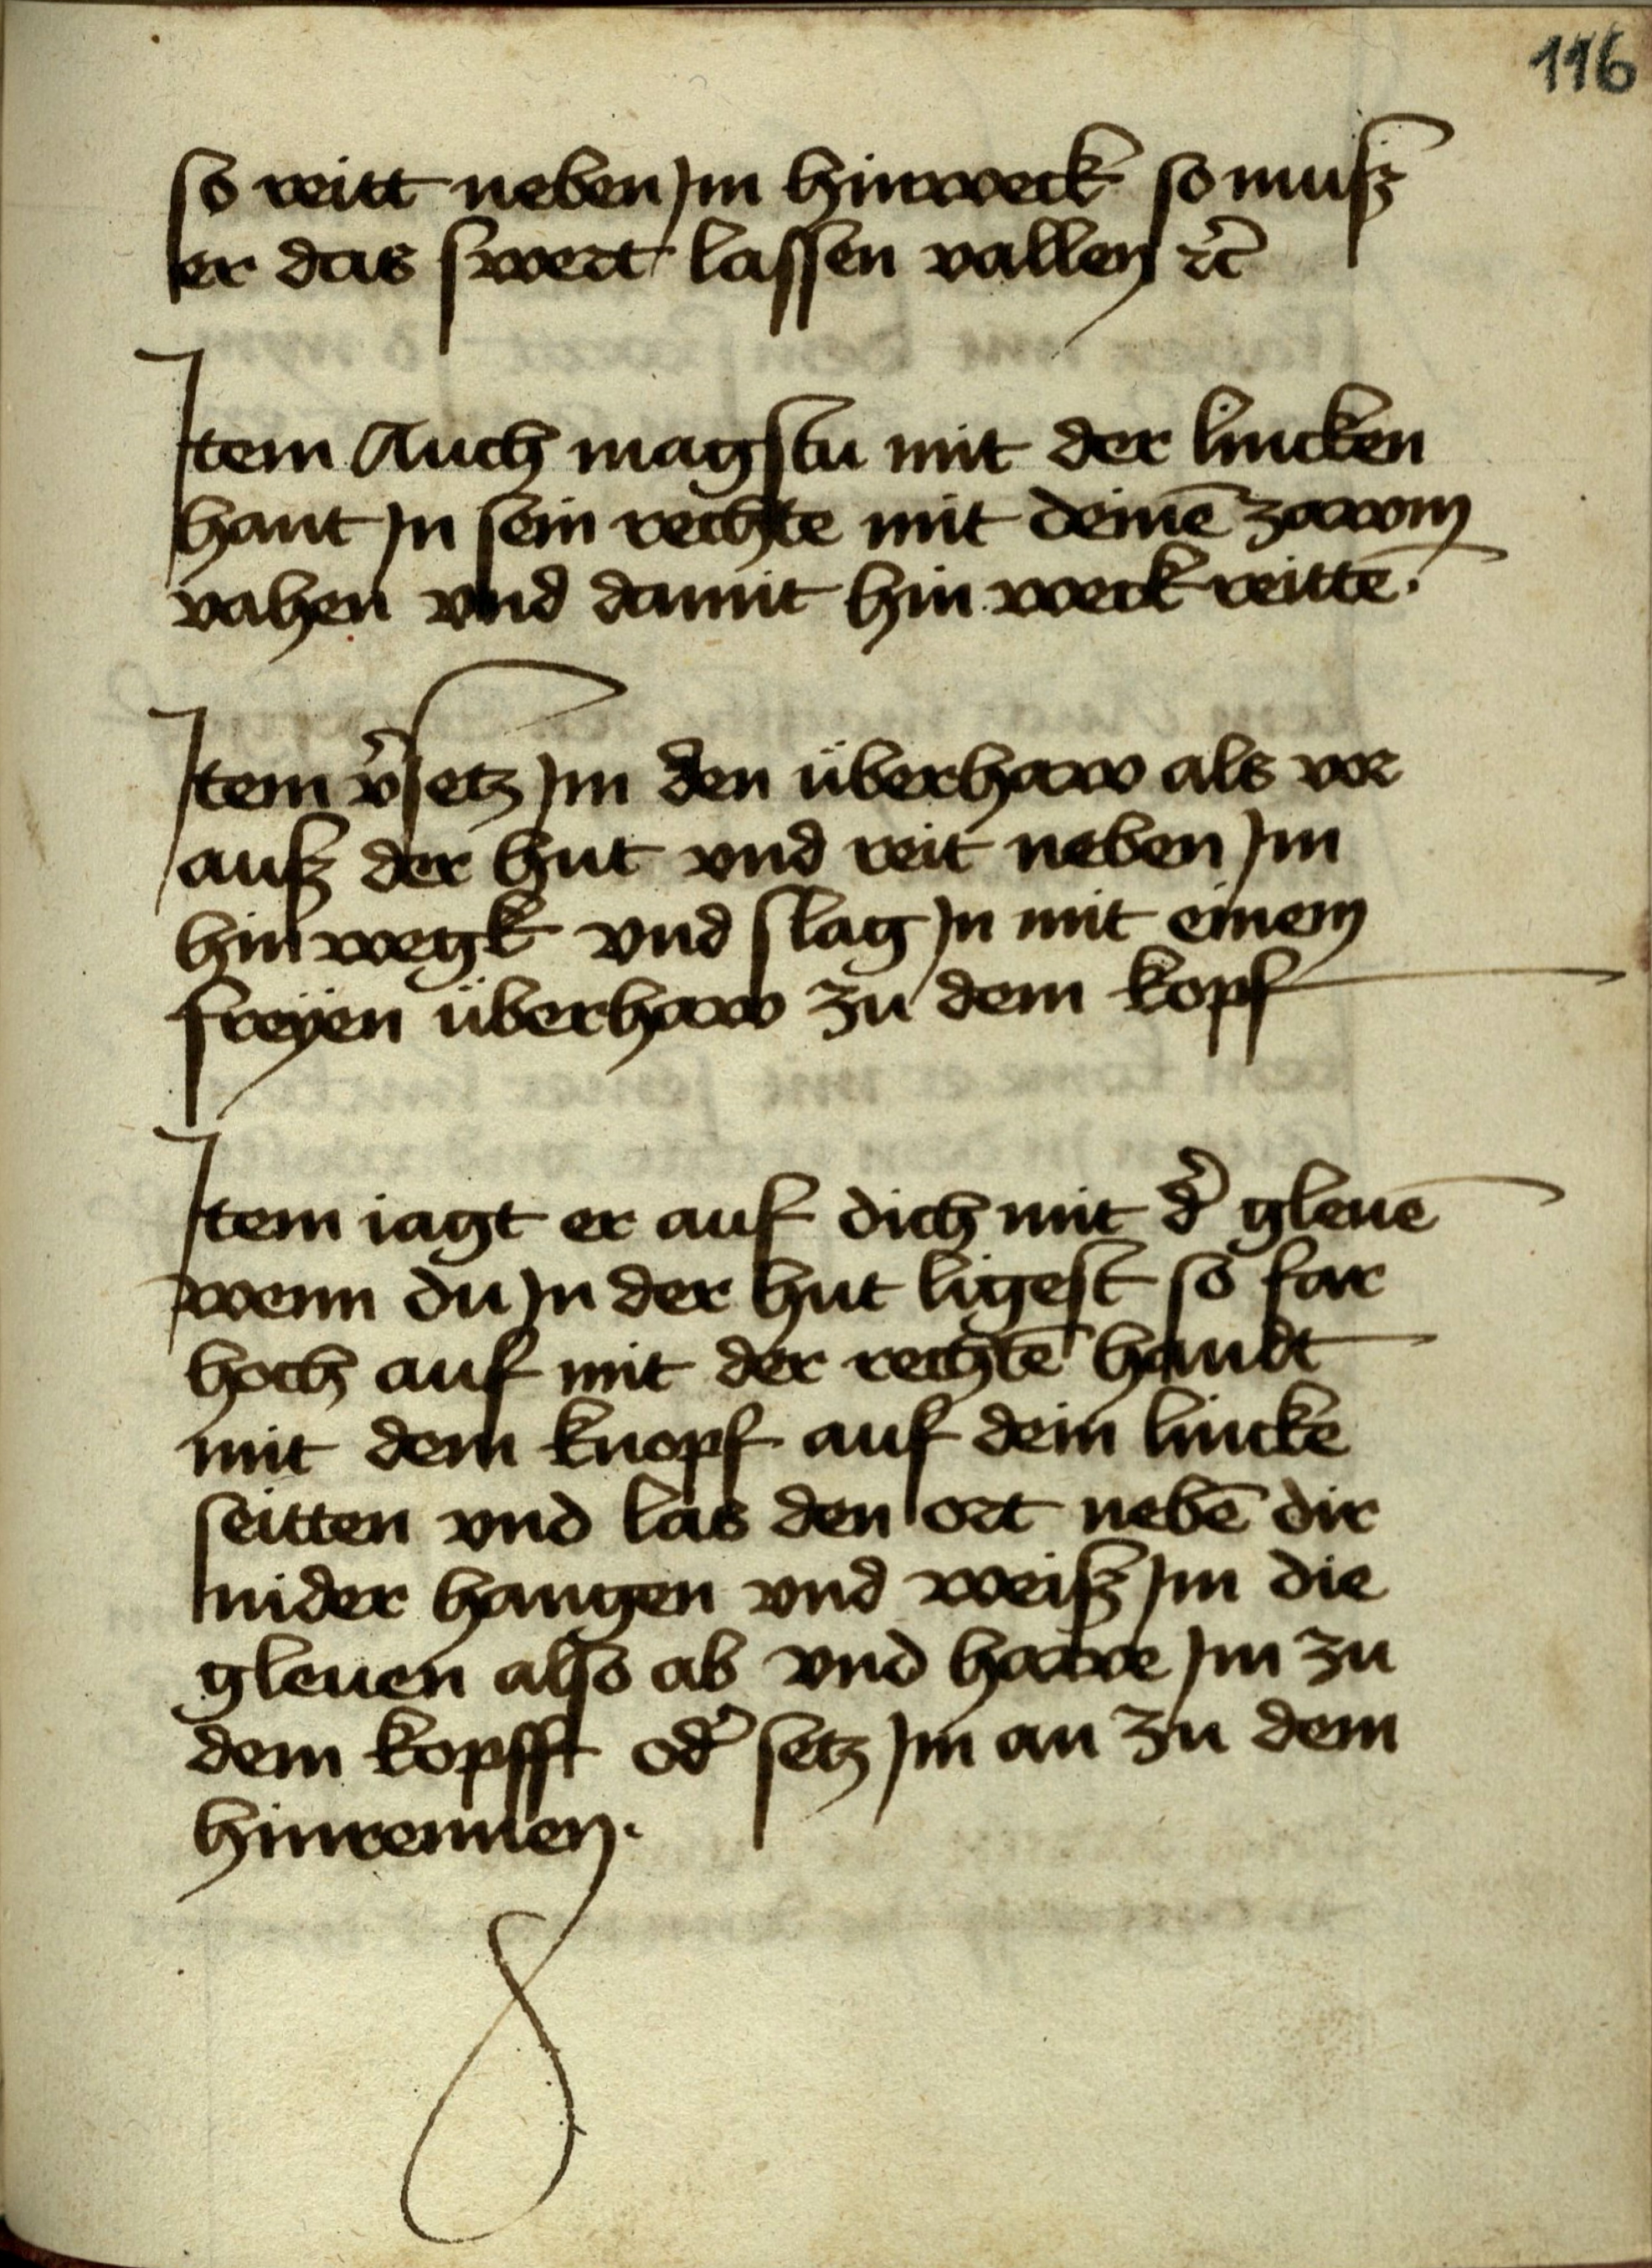 116
so reitt neben Jm hinweck so muß
er das swert lassen vallen ꝛc̄
Jtem Auch magstu mit der lincken
hant Jn sein rechte mit deinē zawm
vahen vnd damit hin weck reittē.
Jtem v̉setz Jm den überhaw als vor
auß der hut vnd reit neben Jm
hin wegk vnd slag Jn mit einem
freÿen überhaw zu dem kopf
Jtem iagt er auf dich mit d̉ gleuē
wenn du Jn der hut ligest so far
hoch auf mit der rechtē handt
mit dem knopf auf dein lincke
seitten vnd las den ort nebē dir
nider hangen vnd weiß Jm die
gleuen also ab vnd hawe Jm zu
dem kopfft od̉ setz Jm an zu dem
hinrennen.